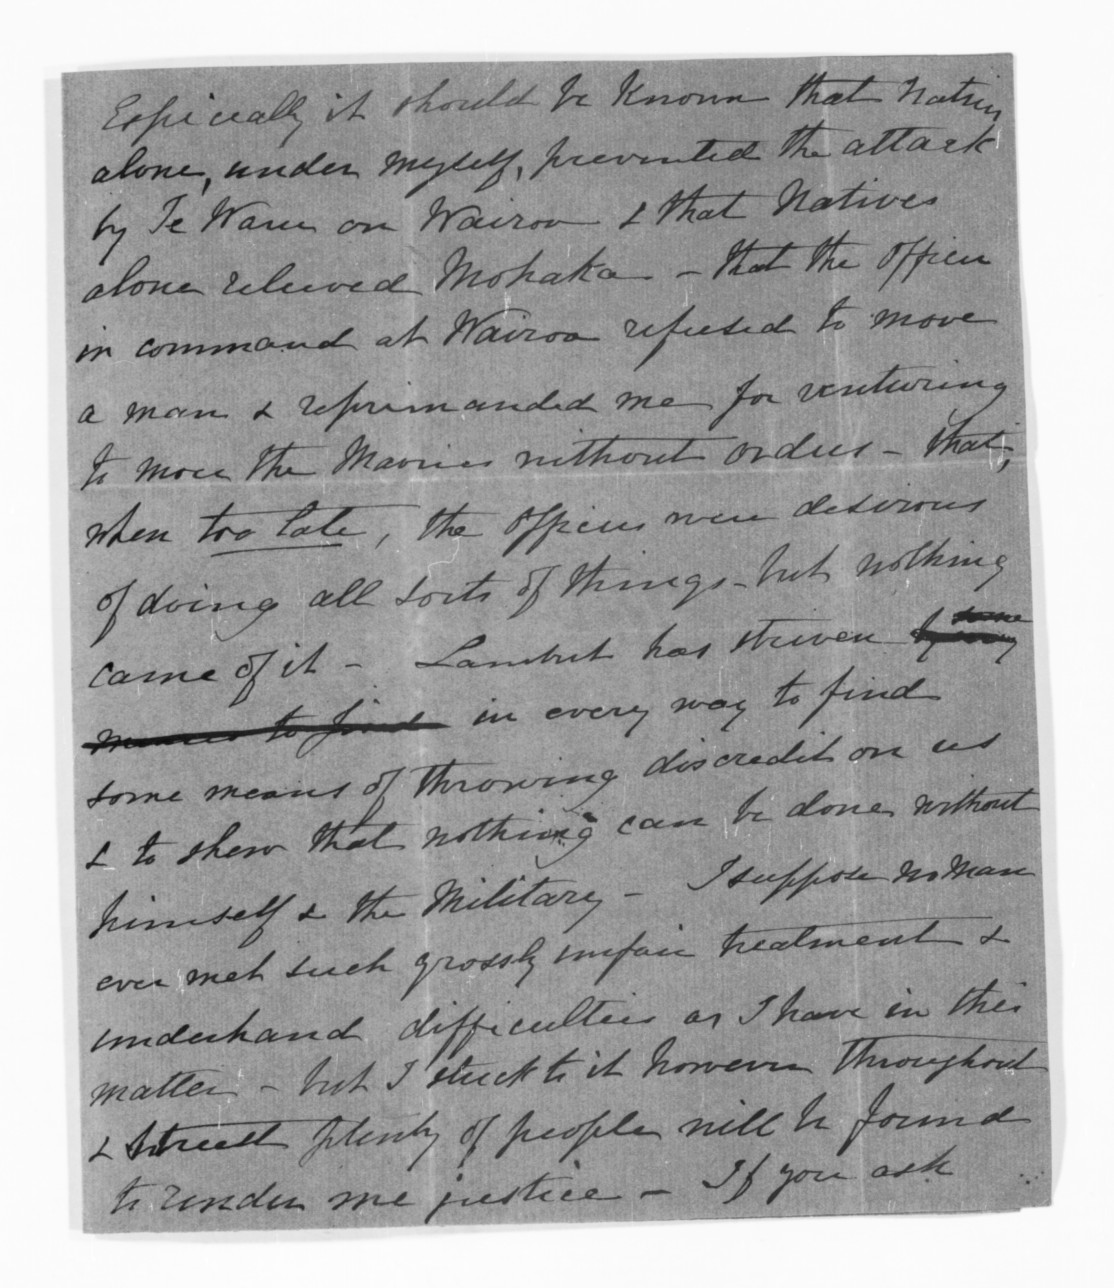 Especially it should be known that Natives
alone, under myself, prevented the attack
by Te Waru on Wairoa & that Natives
alone relieved Mohaka – that the Officer
in command at Wairoa refused to move
a man & reprimanded me for venturing
to move the Maories without orders – that,
when too late, the Officers were desirous
of doing all sorts of things – but nothing
came of it – Lambert has striven by some
means to find in every way to find
some means of throwing discredit on us
& to shew that nothing can be done without
himself & the Military – I suppose no man
ever met such grossly unfair treatment &
underhand difficulties as I have in this
matter – but I stuck to it however throughout
& plenty of people will be found
to render me justice – If you ask